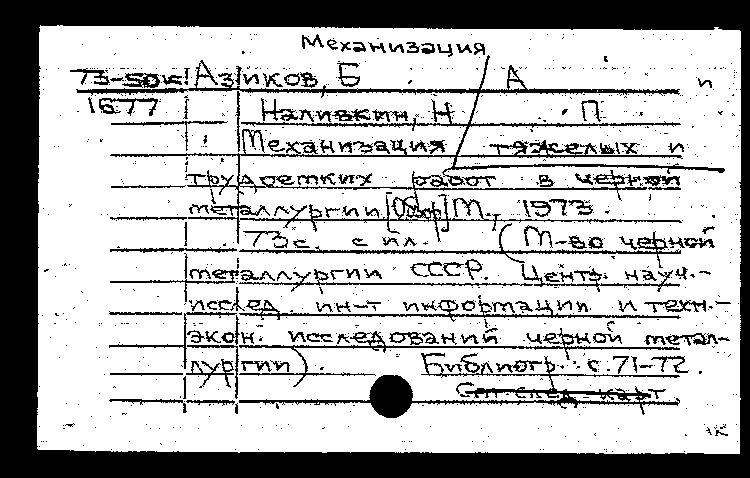 Механизация
73-50к Азиков, Б А и
1677 Наливкин, Н П
Механизация тяжелых и
трудоемких работ в черной
металлургии [Обзор] М., 1973.
73с. с ил. (М-во черной
металлургии СССР. Центр. науч.-
исслед. ин-т информации и техн.-
экон. исследований черной метал-
лургии). Библиогр.: с. 71-72.
См. след. карт.